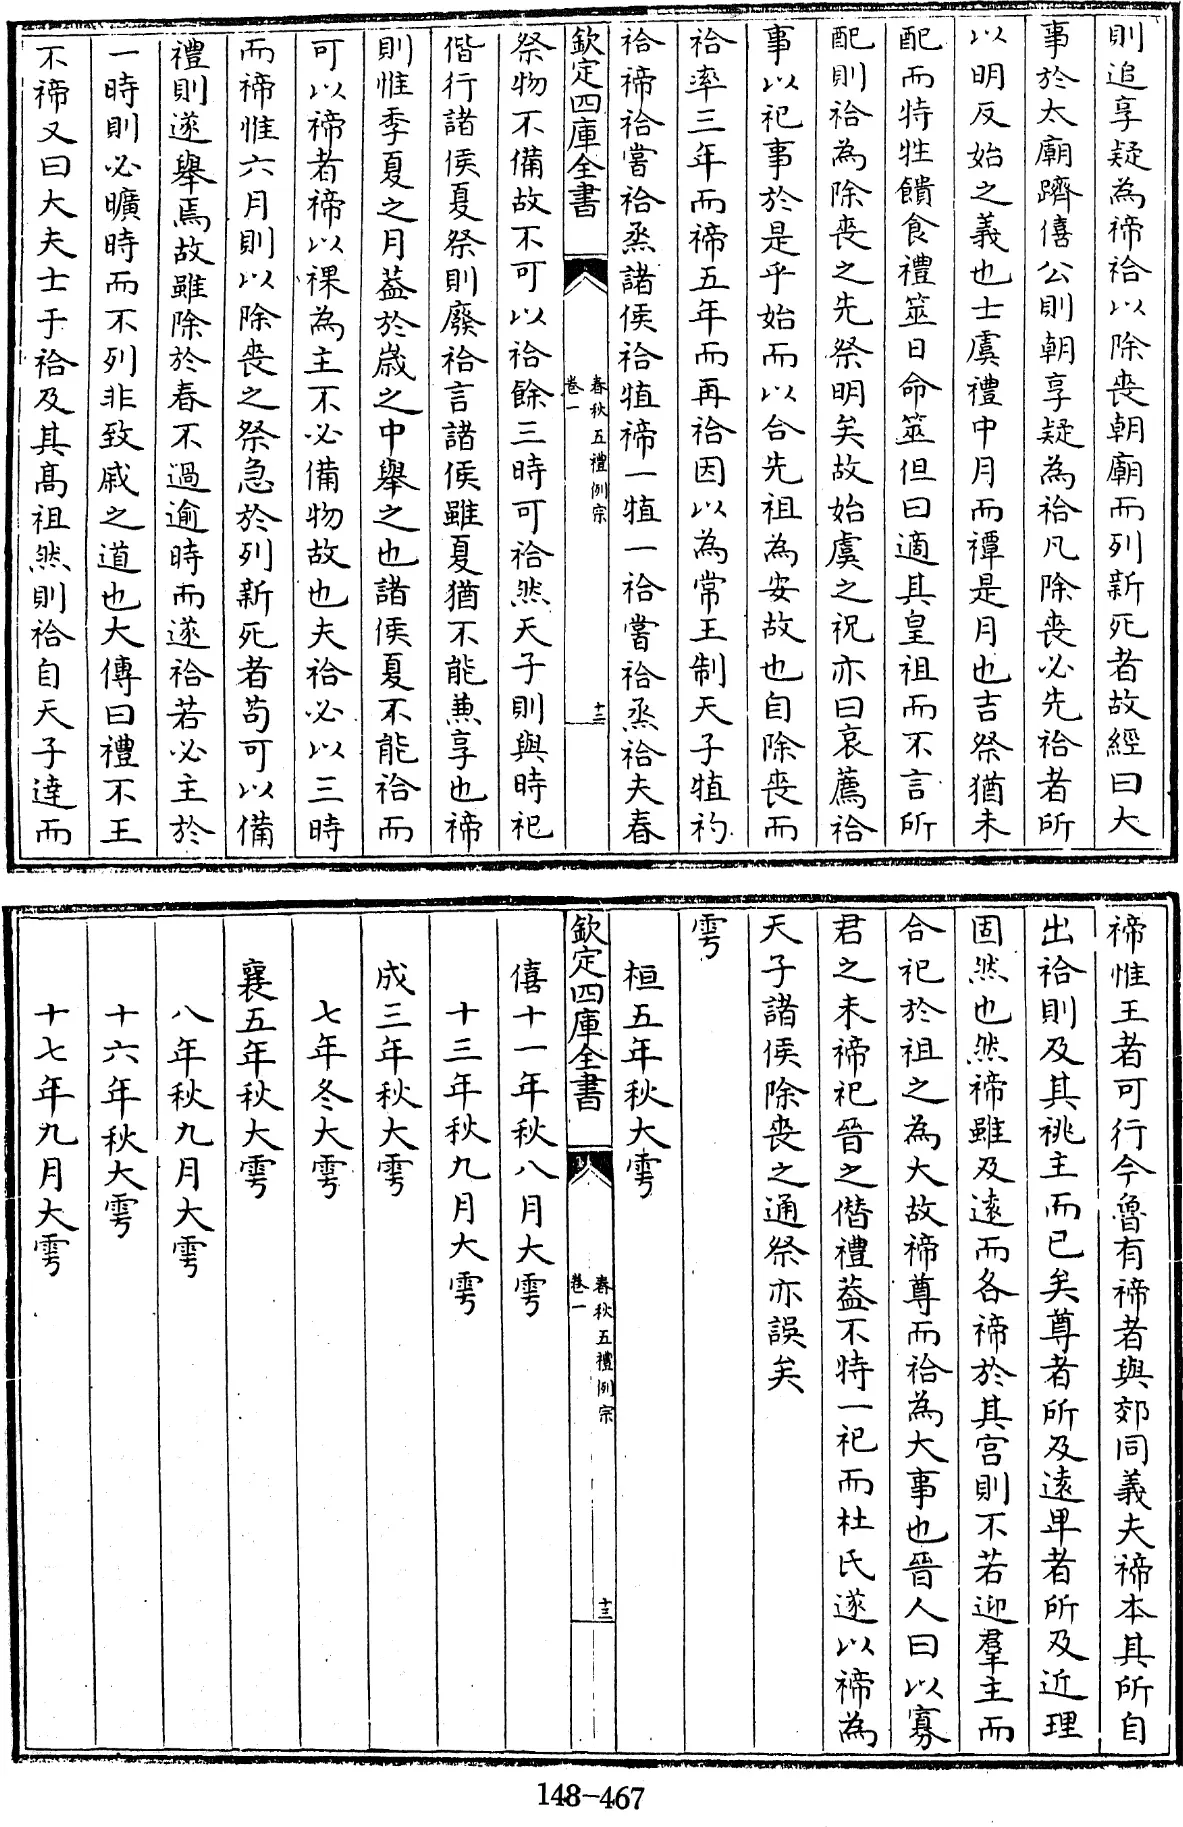 則追享疑為禘祫以除喪朝廟而列新死者故經曰大
事於太廟躋僖公則朝享疑為祫凡除喪必先祫者所
以明反始之義也士虞禮中月而禫是月也吉祭猶未
配而特牲饋食禮筮日命筮但曰適其皇祖而不言所
配則祫為除喪之先祭明矣故始虞之祝亦曰哀薦祫
事以祀事於是乎始而以合先祖為安故也自除喪而
祫率三年而禘五年而再祫因以為常王制天子犆礿
祫禘祫嘗祫烝諸侯祫犆禘一犆一祫嘗祫烝祫夫春
欽定四庫全書
春秋五禮例宗
卷一
十三
祭物不備故不可以祫餘三時可祫然天子則與時祀
偕行諸侯夏祭則廢祫言諸侯雖夏猶不能兼享也禘
則惟季夏之月葢於歲之中舉之也諸侯夏不能祫而
可以禘者禘以祼為主不必備物故也夫祫必以三時
而禘惟六月則以除喪之祭急於列新死者苟可以備
禮則遂舉焉故雖除於春不過逾時而遂祫若必主於
一時則必曠時而不列非致戚之道也大傳曰禮不王
不禘又曰大夫士于祫及其髙祖然則祫自天子達而
禘惟王者可行今魯有禘者與郊同義夫禘本其所自
出祫則及其祧主而已矣尊者所及遠卑者所及近理
固然也然禘雖及遠而各禘於其宫則不若迎羣主而
合祀於祖之為大故禘尊而祫為大事也晉人曰以寡
君之未禘祀晉之僭禮葢不特一祀而杜氏遂以禘為
天子諸侯除喪之通祭亦誤矣
雩
桓五年秋大雩
欽定四庫全書
春秋五禮例宗
卷一
十三
僖十一年秋八月大雩
十三年秋九月大雩
成三年秋大雩
七年冬大雩
襄五年秋大雩
八年秋九月大雩
十六年秋大雩
十七年九月大雩
148-467